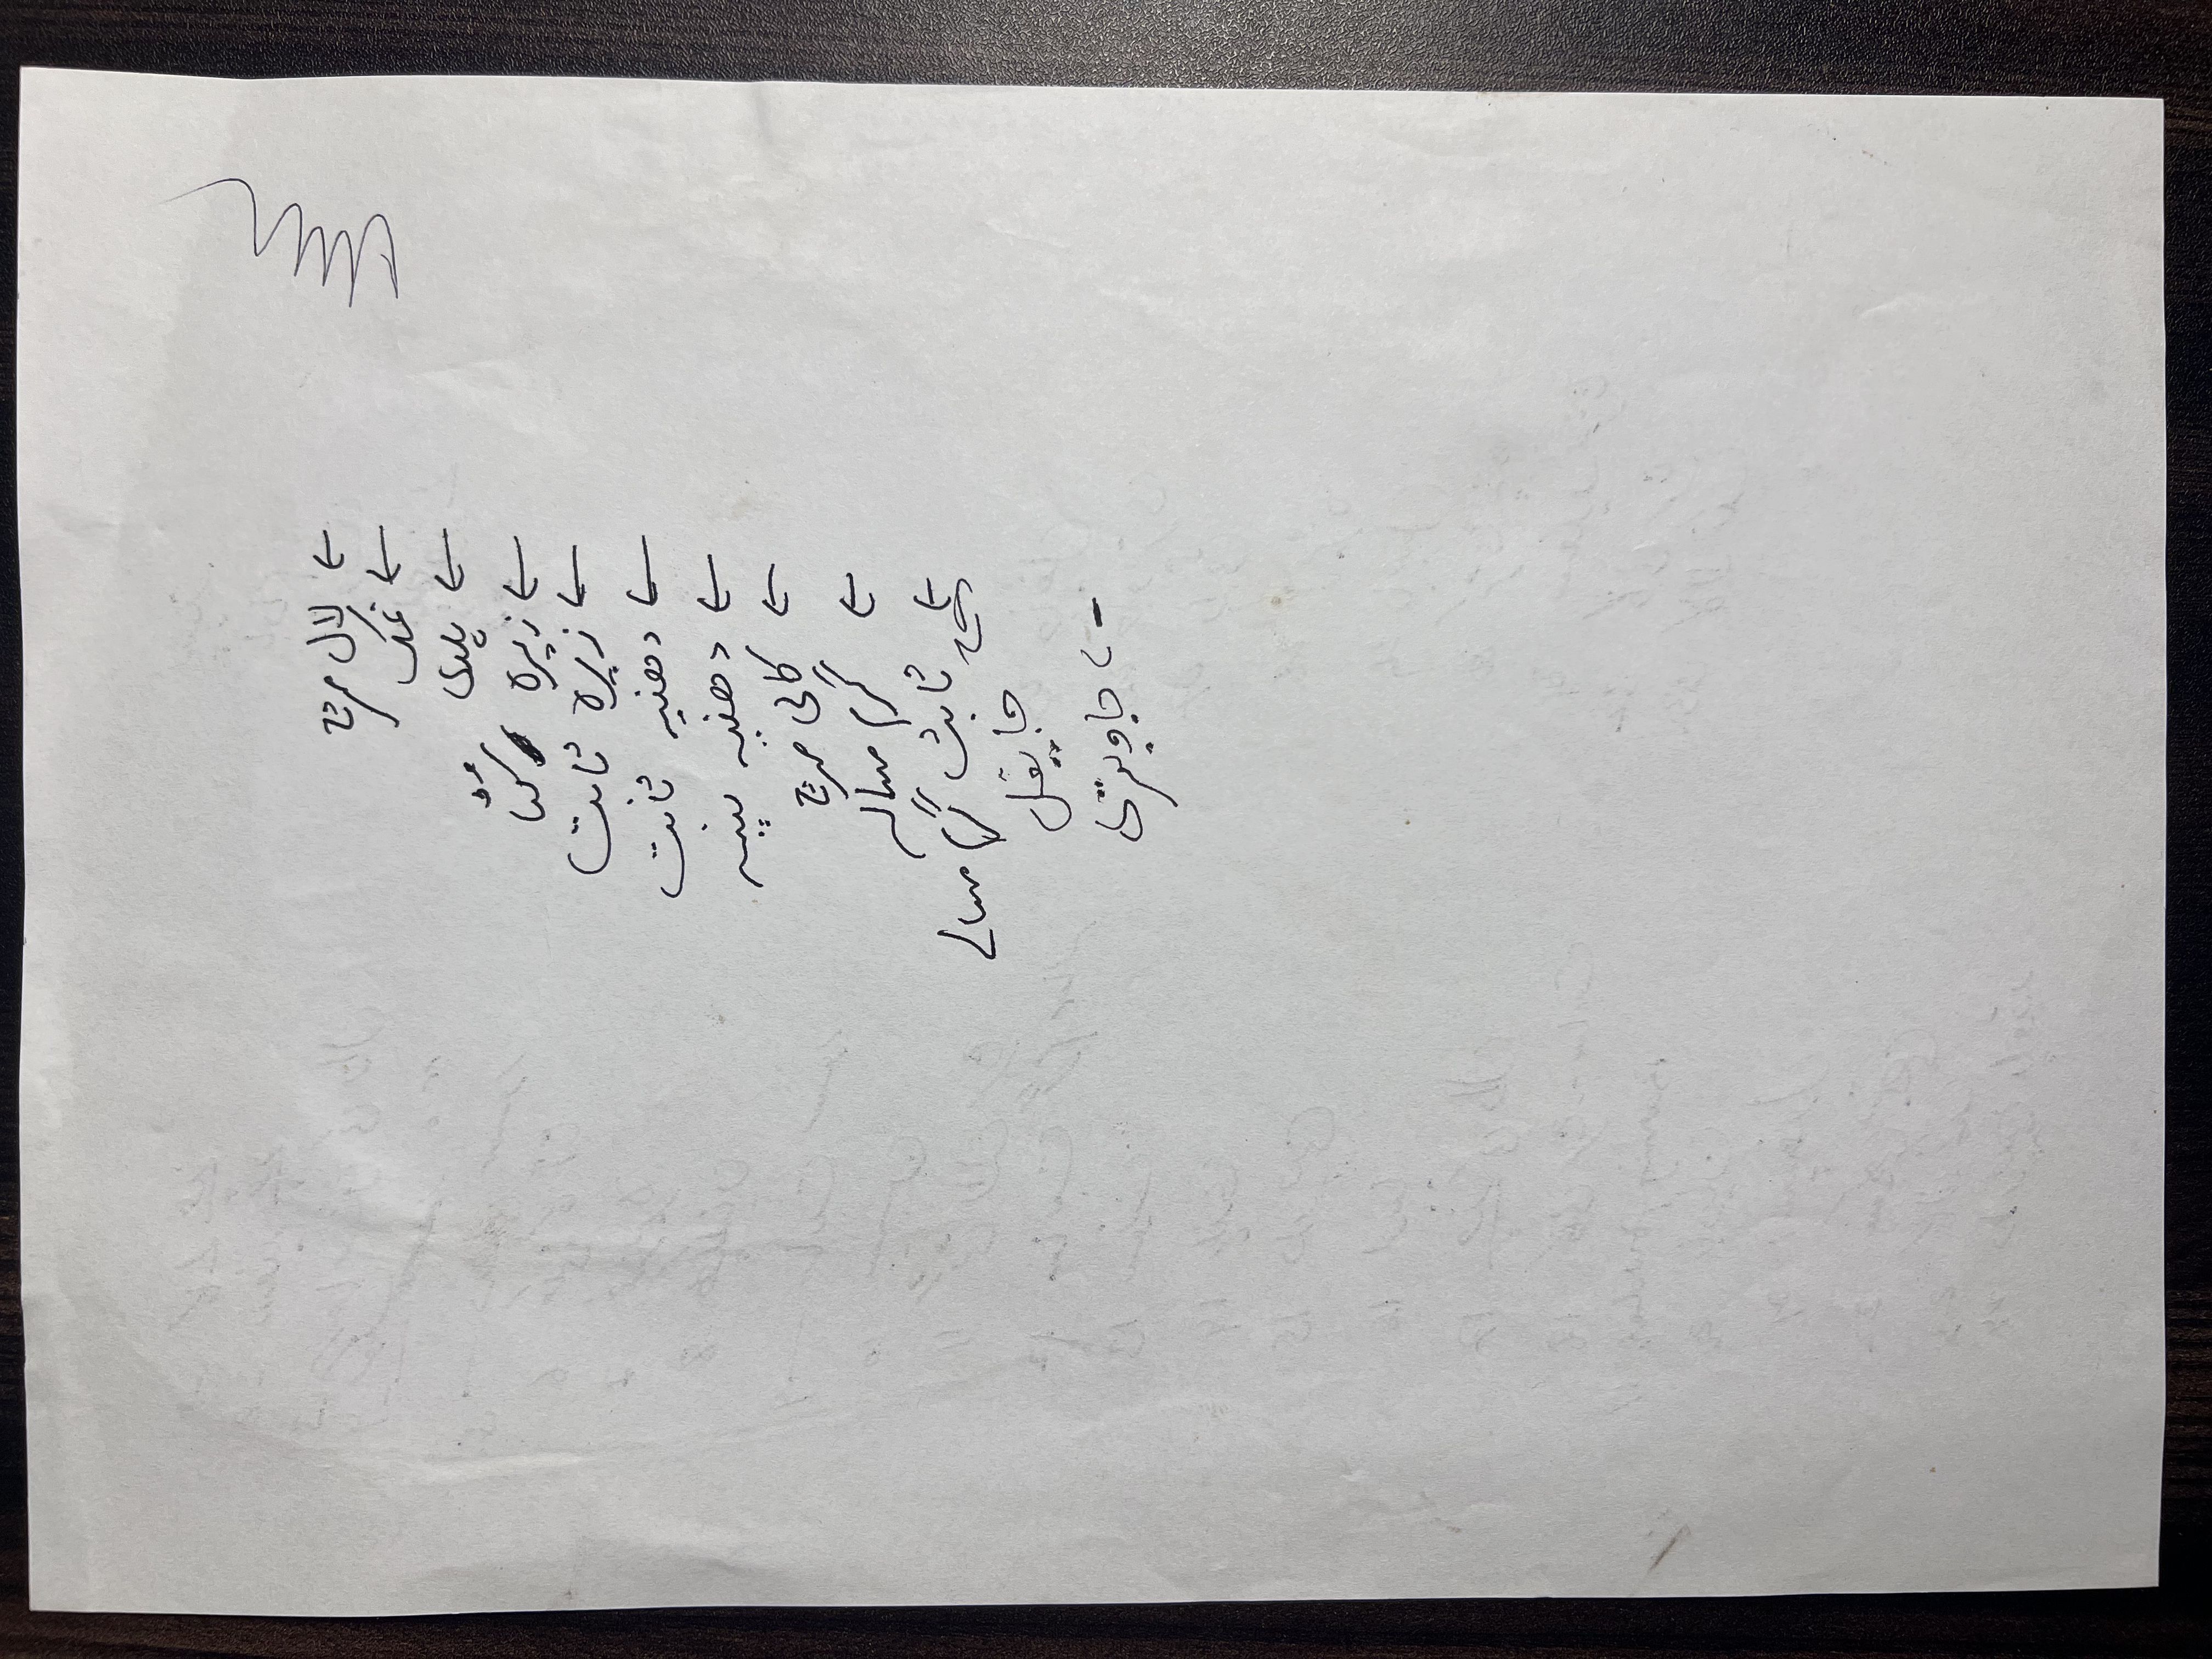 ← لال مرچ
← نمک
← ہلدی
← زیرہ کُٹا
← زیرہ ثابت
← دھنیہ ثابت
← دھنیہ پیسہ
← کالی مرچ
← گرم مسالہ
← ثابت گرم مسالے
جایفل
- جاویتری